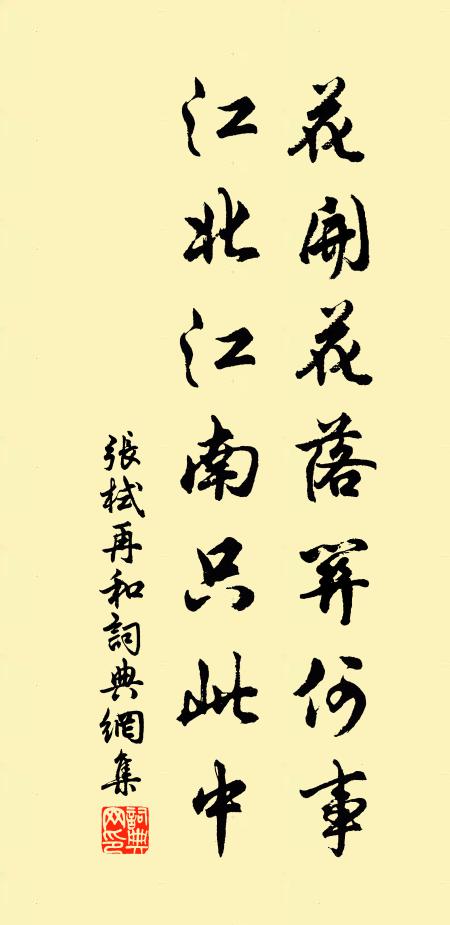 花開花落關何事
江北江南只此中
張栻再和詞典網集
詞典网印